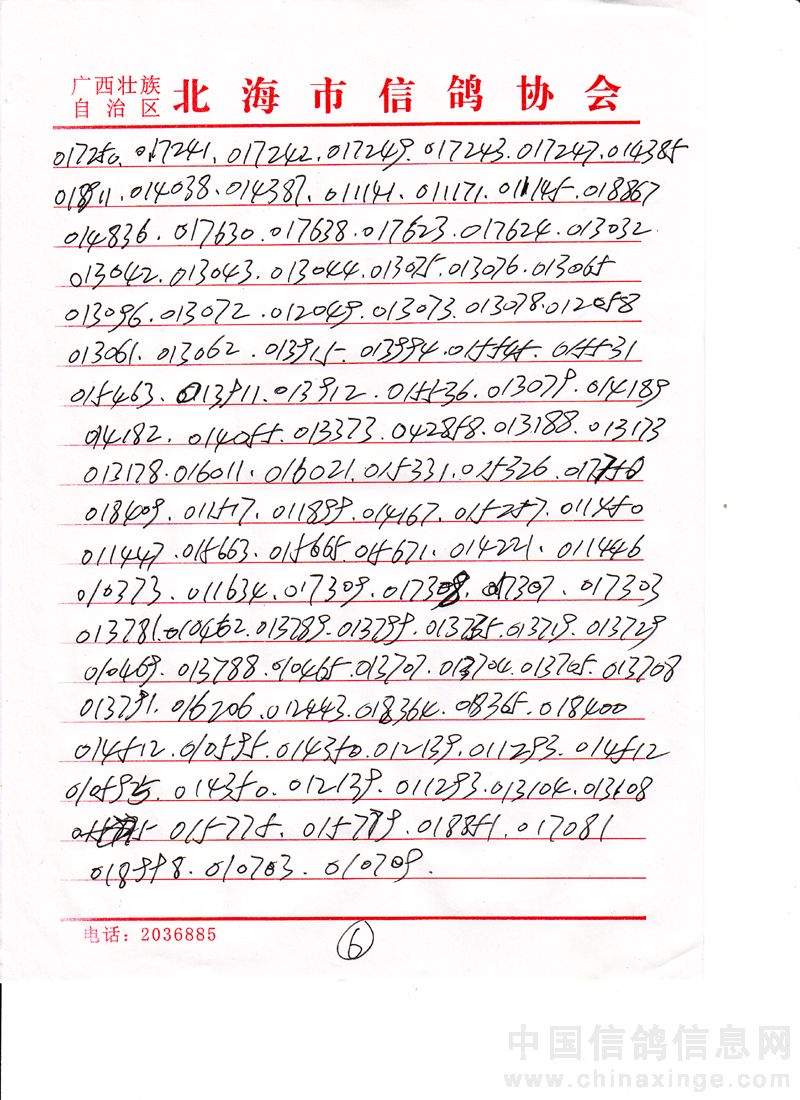 广西壮族
自治区
北海市信鸽协会
017250. 017241. 017242. 017249. 017243. 017247. 014385
018911. 014038. 014387. 011141. 011171. 011145. 018867
014836. 017630. 017638. 017623. 017624. 013032
013042. 013043. 013044. 013075. 013076. 013065
013096. 013072. 012049. 013073. 013078. 012058
013061. 013062. 013915. 013994. 015545. 015531
015463. 013911. 013912. 015536. 013079. 014189
014182. 014055. 013373. 042858. 013188. 013173
013178. 016011. 016021. 015331. 015326.
018409. 011517. 011899. 014167. 015257. 011450
011447. 015663. 015665. 015671. 014221. 011446
010373. 011634. 017309. 017308. 017307. 017303
013781. 010462. 013789. 013799. 013719. 013729
010469. 013788. 010465. 013707. 013704. 013705. 013708
013791. 016206. 012443. 018364. 018365. 018400
014512. 010595. 014350. 012139. 011293. 014512
010595. 014350. 012139. 011293. 013104. 013108
015775. 015779. 018851. 017081
018998. 010703. 010709.
电话：2036885
6
中国信鸽信息网
www.chinaxinge.com